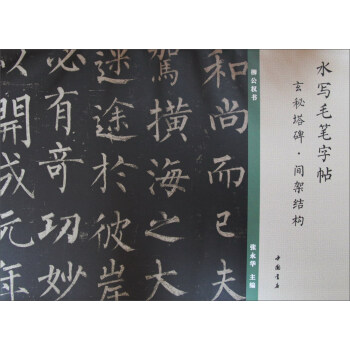 水写毛笔字帖
玄秘塔碑·间架结构
中国书店
柳公权书
张永华 主编
和尚而已夫
駕橫海之大
迷途於彼岸
必有奇功妙
以開成元年